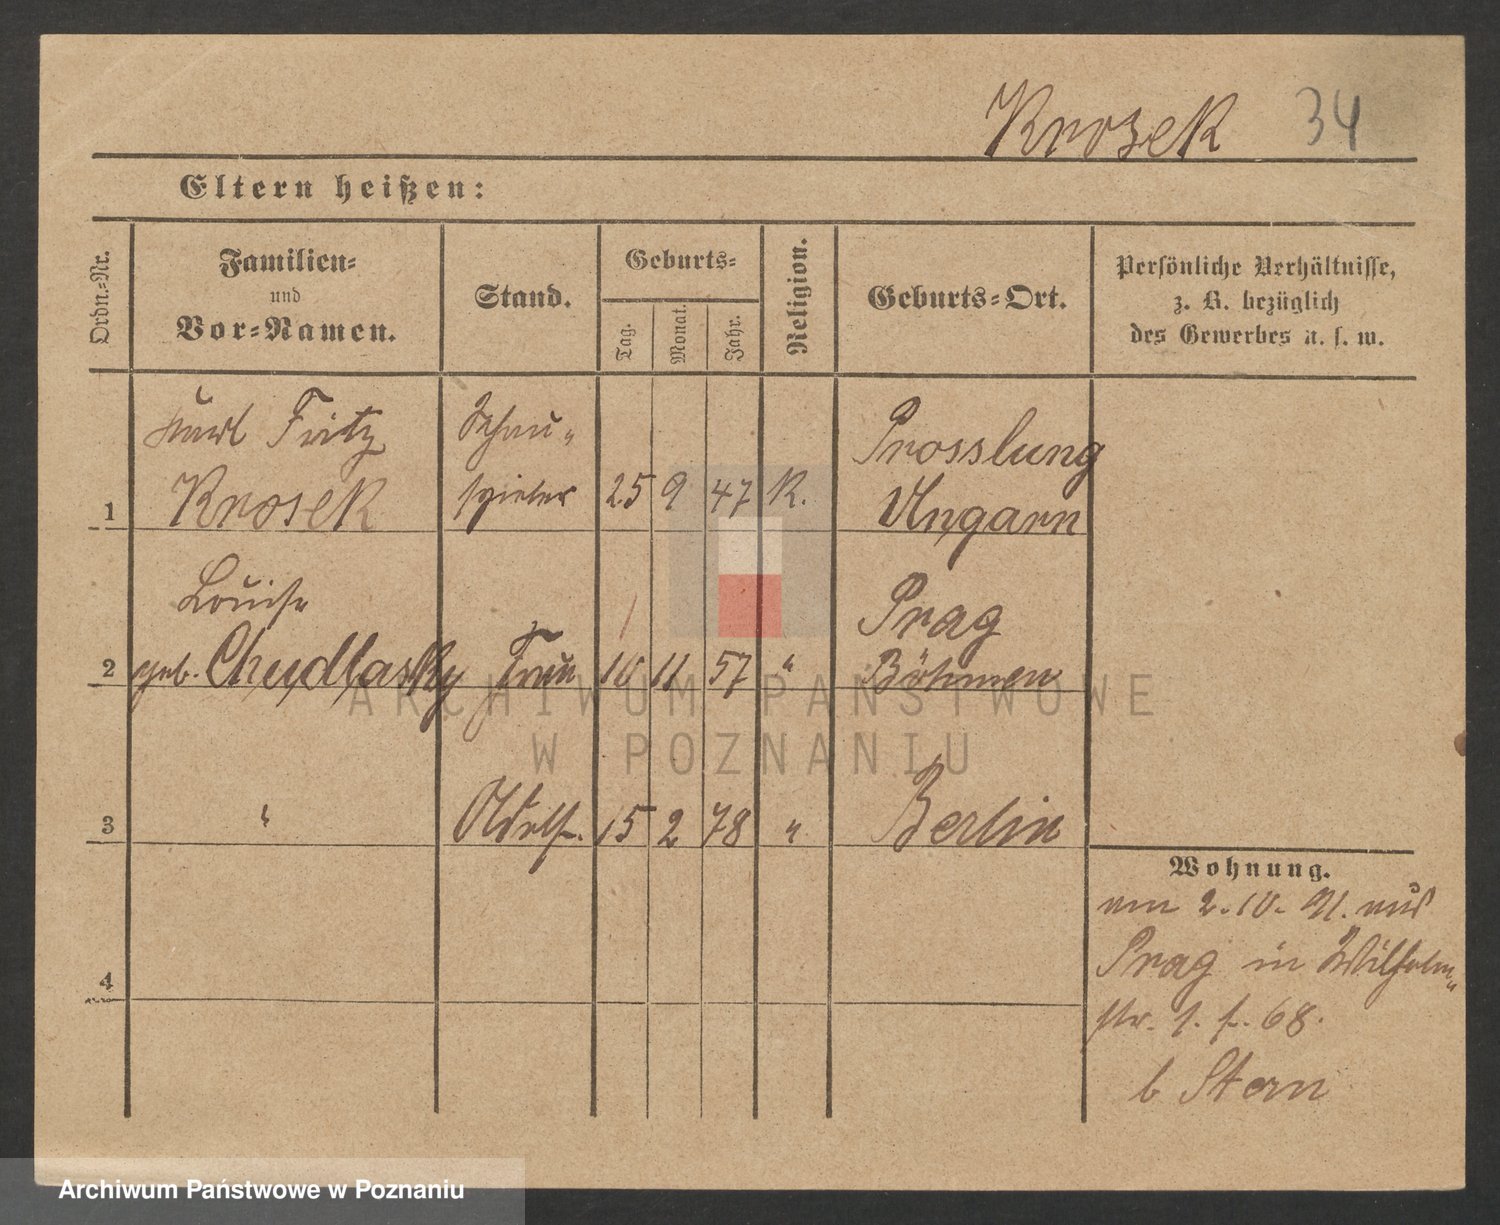 Krosek 34
Eltern heißen:
Ordn.-Nr.
Familien-
und
Vor-Namen.
Stand.
Geburts-
Tag.
Monat.
Jahr.
Religion.
Geburts-Ort.
Persönliche Verhältnisse,
z. B. bezüglich
des Gewerbes u. s. w.
Karl Fritz Schau-
Prosslung
1 Krosek spieler 25 9 47 K. Ungarn
Louise Prag
2 geb. Chudlasky Frau 10 11 57 " Böhmen
3 " Adolf 15 2 78 " Berlin
4
Wohnung.
am 2.10.91. aus
Prag in Wilhelm-
str. 68.
b Stern
ARCHIWUM PAŃSTWOWE
W POZNANIU
Archiwum Państwowe w Poznaniu